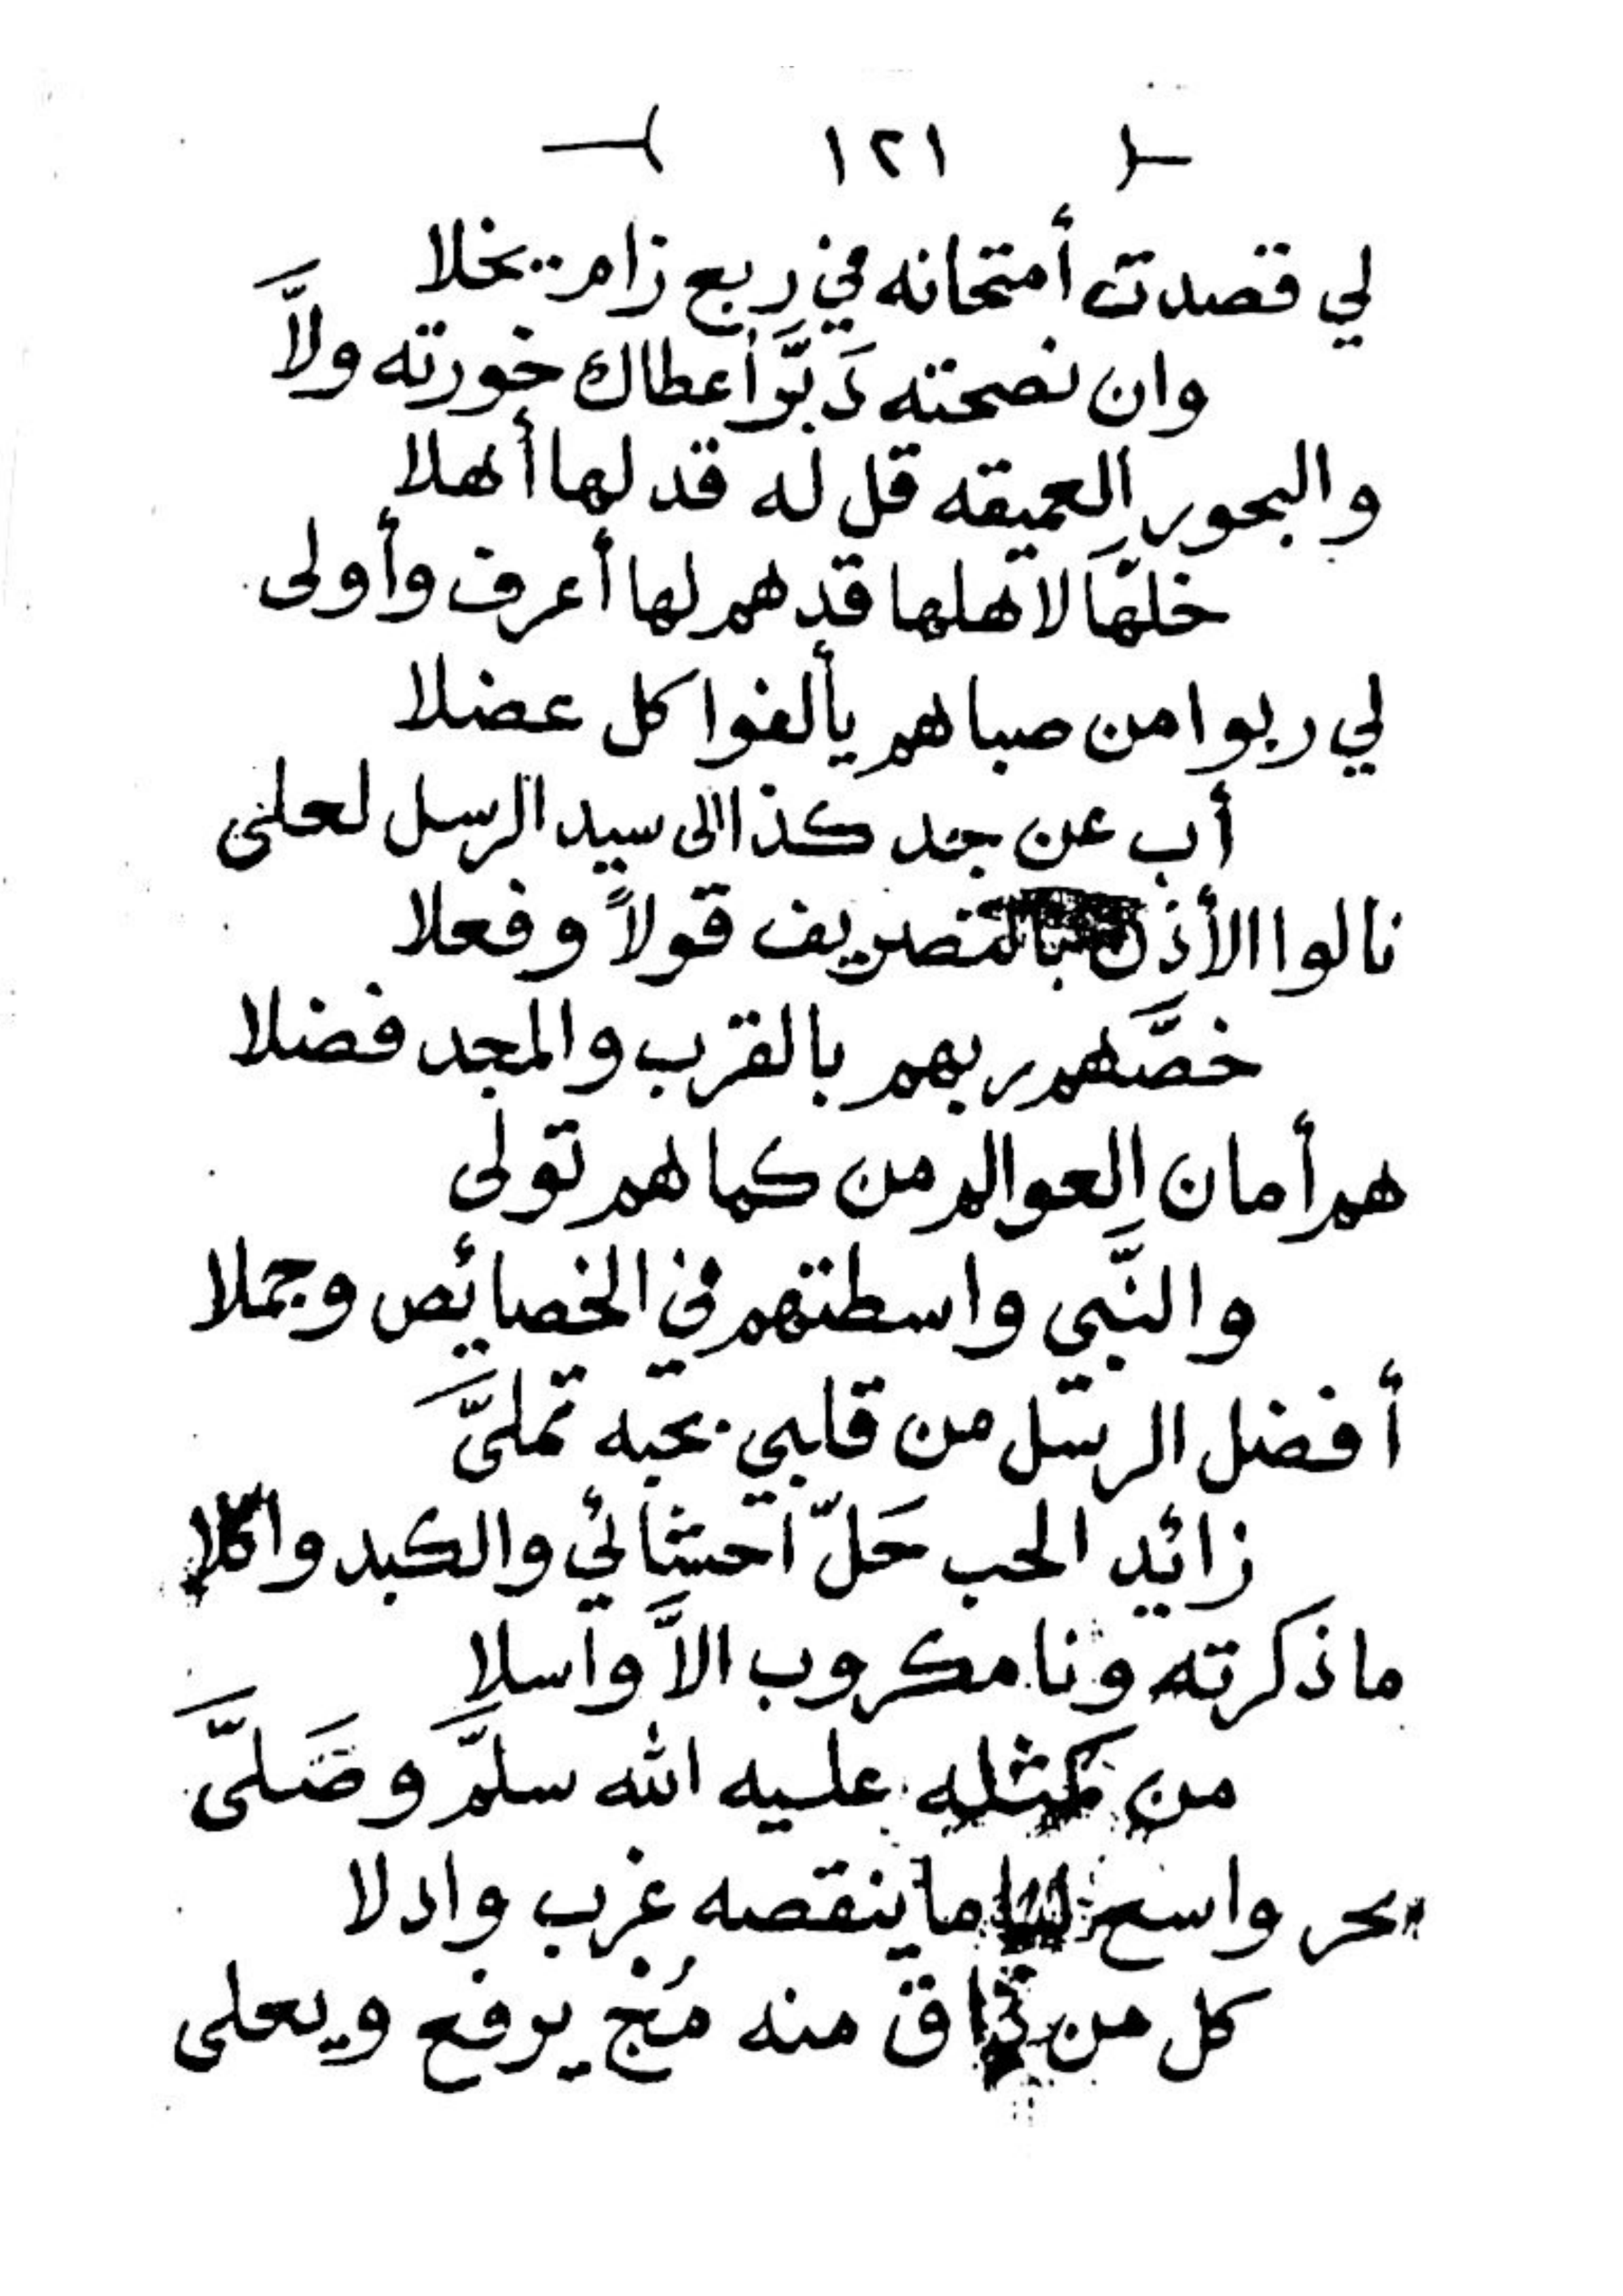 ١٢١
لي قصدت أمتحانه في ربع زام يخلا
وان نصحته دَبَّرَ أعطاك خورته ولاَّ
والبحور العميقه قل له قد لها أهلا
خلّهَا لاهلها قد هم لها أعرف وأولى
لي ربوا من صباهم يألفوا كل عضلا
أب عن جد كذا الى سيد الرسل لعلى
نالوا الأذن بالتصريف قولاً وفعلا
خصَّهم ربهم بالقرب والمجد فضلا
هم أمان العوالم من كماهم تولى
والنَّبي واسطتهم في الخصائص وجملا
أفضل الرسل من قلبي بحبه تملىَّ
زائد الحب حَلّ احشائي والكبد والكلا
ما ذكرته ونا مكروب الاَّ واسلا
من كمثله عليه الله سلمَّ وصَلىَّ
بحر واسع ما ينقصه غرب وادلا
كل من ذاق منه مُج يرفع ويعلى